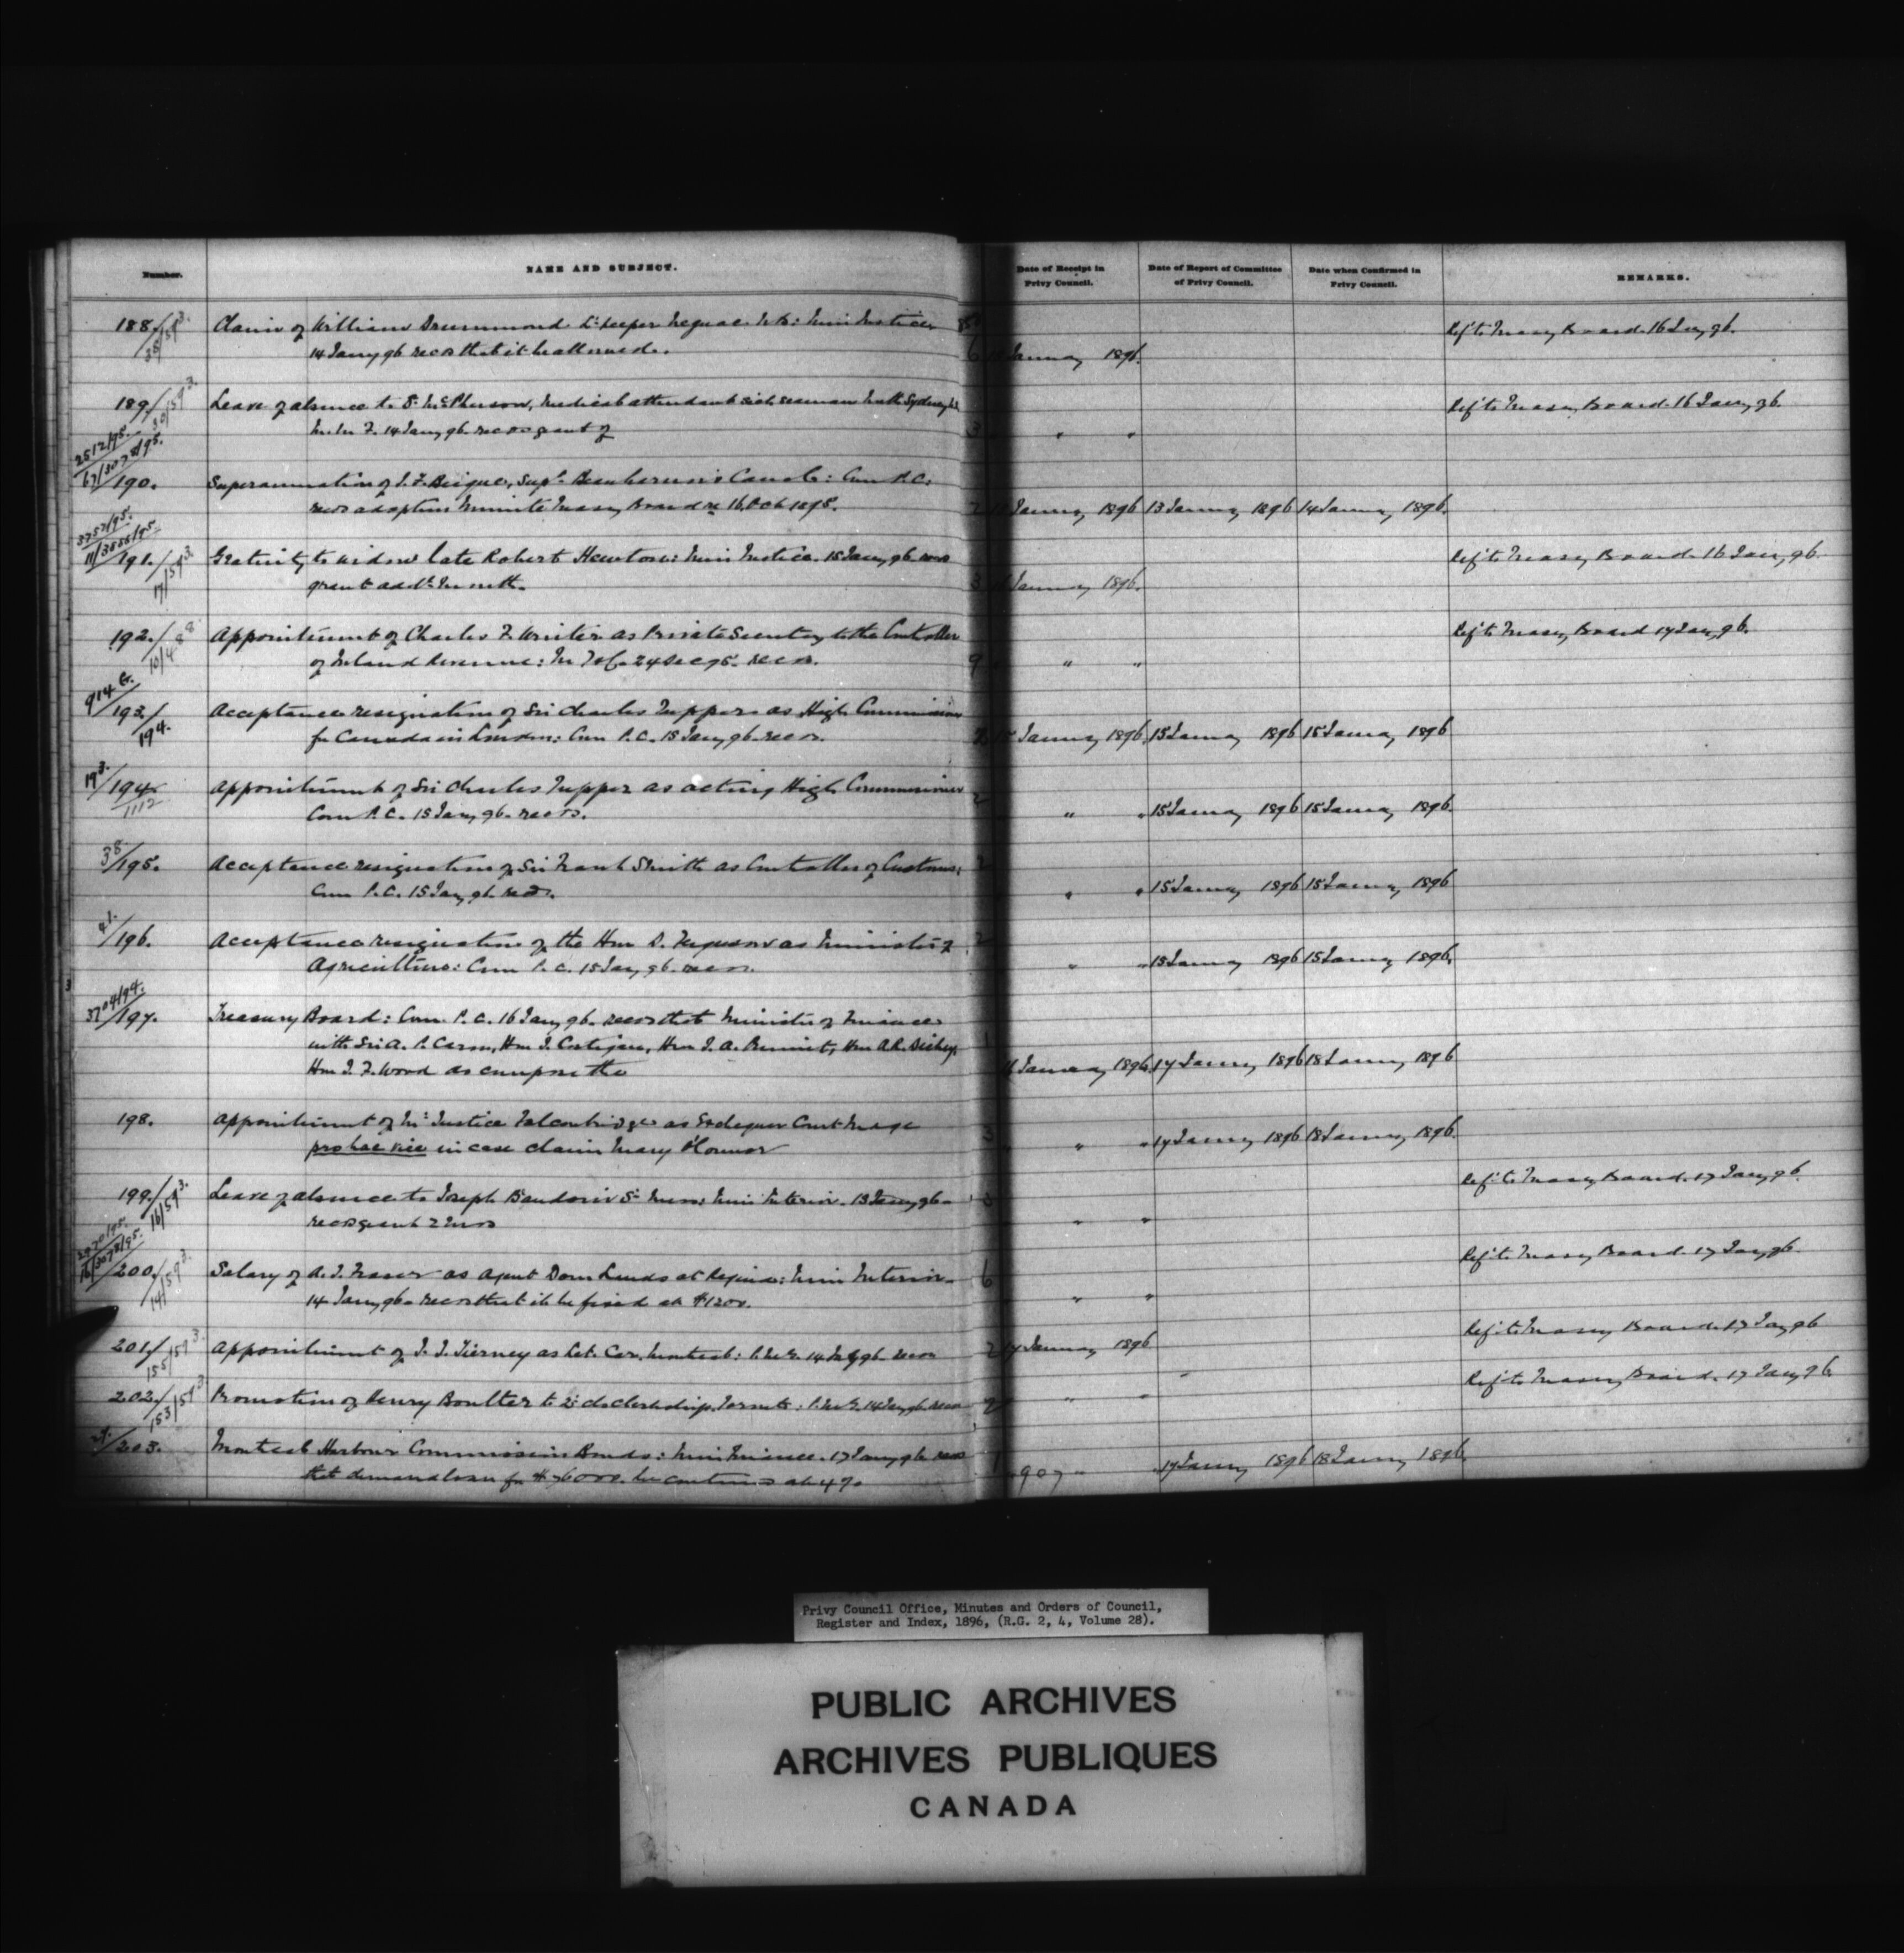 Number.
NAME AND SUBJECT.
Date of Receipt in Privy Council.
Date of Report of Committee of Privy Council.
Date when Confirmed in Privy Council.
REMARKS.
188. Claim of William Drummond Lt. keeper N.B: Min Justice
14 Jany 96 recos that it be allowed.
January 1896.
Ref to Treasy Board 16 Jany 96.
189. Leave of absence to Dr McPherson, medical attendant sick seaman North Sydney
M. M. F. 14 Jany 96. recos grant of
" "
Ref to Treasy Board 16 Jany 96.
2512/95.
67/3078/95.
190. Superannuation of Bisque, Supt Beauharnois Canal: Com P.C:
recos adoption Minute Treasy Board re 16 Oct 1895.
January 1896
13 January 1896
14 January 1896.
3757/95.
11/3555/95.
191. Gratuity to widow late Robert Min Justice. 15 Jany 96 recos
grant addl month.
January 1896.
Ref to Treasy Board 16 Jany 96.
192. Appointment of Charles F. Winter as Private Secretary to the Controller
of Inland Revenue: 24 Dec 95. recos.
" "
Ref to Treasy Board 17 Jany 96.
914 G.
193/194. Acceptance resignation of Sir Charles Tupper as High Commissioner
for Canada in London: Com P.C. 15 Jany 96. recos.
15 January 1896
15 January 1896
15 January 1896
193/194
1112
Appointment of Sir Charles Tupper as acting High Commissioner
Com P.C. 15 Jany 96. recos.
" "
15 January 1896
15 January 1896.
38/195. Acceptance resignation of Sir Frank Smith as Controller of Customs:
Com P.C. 15 Jany 96. recos.
" "
15 January 1896
15 January 1896
41/196. Acceptance resignation of the Hon D. Ferguson as Minister of
Agriculture: Com P.C. 15 Jany 96. recos.
" "
15 January 1896
15 January 1896.
3704/94.
197. Treasury Board: Com. P.C. 16 Jany 96. recos that Minister of Finance
with Sir A. P. Caron, Hon J. Costigan, Hon A.R. Dickey,
Hon J. F. Wood do compose the
16 January 1896
17 January 1896
18 January 1896
198. Appointment of Mr Justice Falconbridge as Exchequer Court Judge
pro hac vice in case claim Mary O'Connor
" "
17 January 1896
18 January 1896.
199. Leave of absence to Joseph Min Interior. 13 Jany 96.
recos grant 2 mos
" "
Ref to Treasy Board. 17 Jany 96.
2970/95.
16/3078/95.
200. Salary of A. J. Fraser as Agent Dom Lands at Regina: Min Interior
14 Jany 96. recos that it be fixed at $1200.
" "
Ref to Treasy Board. 17 Jany 96.
201. Appointment of J. J. Tierney as Let. Car. Montreal: P.M.G. 14 Jany 96 recos
17 January 1896
Ref to Treasy Board. 17 Jany 96
202. Promotion of Henry Boulter to 2d cl. clerkship. Toronto: P.M.G. 14 Jany 96. recos
" "
Ref to Treasy Board. 17 Jany 96.
203. Montreal Harbour Commission Bonds: Min Finance. 17 Jany 96 recos
that demand loan for be continued at 4%
907 "
17 January 1896
18 January 1896
Privy Council Office, Minutes and Orders of Council,
Register and Index, 1896, (R.G. 2, 4, Volume 28).
PUBLIC ARCHIVES
ARCHIVES PUBLIQUES
CANADA